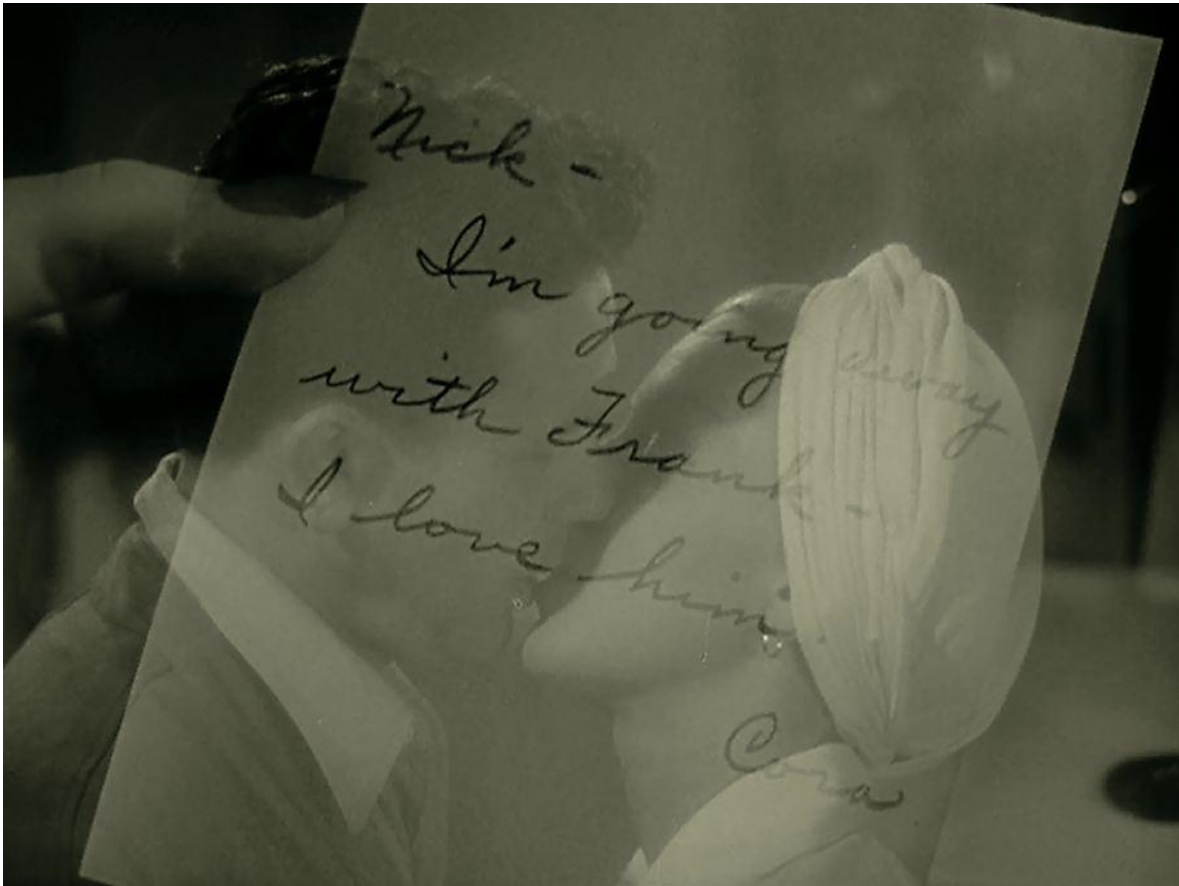 Nick -
I'm going away
with Frank -
I love him.
Cora